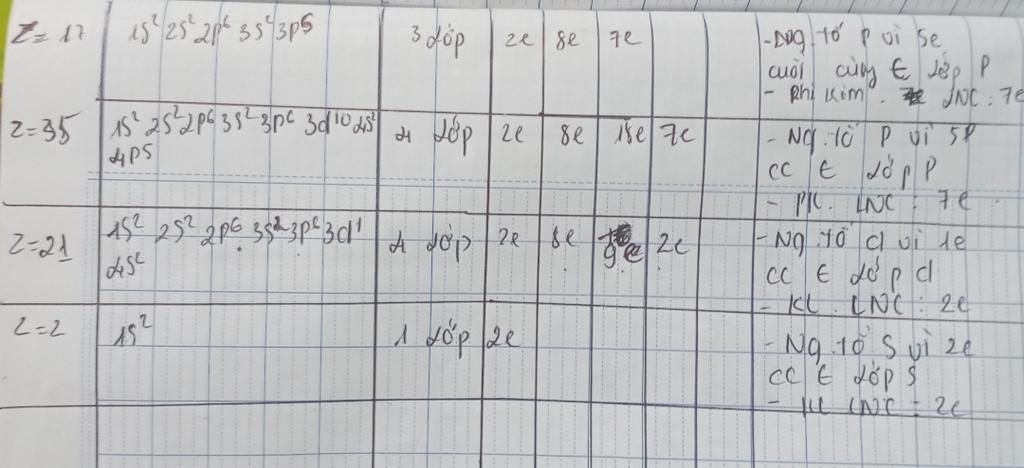 Z = 17 1s² 2s² 2p⁶ 3s² 3p⁵ 3 lớp 2e 8e 7e - Ng tố p vì 5e
cuối cùng ∈ lớp p
- Phi kim. LNC: 7e
Z = 35 1s² 2s² 2p⁶ 3s² 3p⁶ 3d¹⁰ 4s² 4 lớp 2e 8e 18e 7e - Ng. tố p vì 5p
4p5 cc ∈ lớp p
- pk. LNC: 7e
Z = 21 1s² 2s² 2p⁶ 3s² 3p⁶ 3d¹ 4 lớp 2e 8e 9e 2e - Ng tố d vì 1e
4s² cc ∈ lớp d
- KL. LNC: 2e
Z = 2 1s² 1 lớp 2e - Ng tố s vì 2e
cc ∈ lớp s
- LNC = 2e